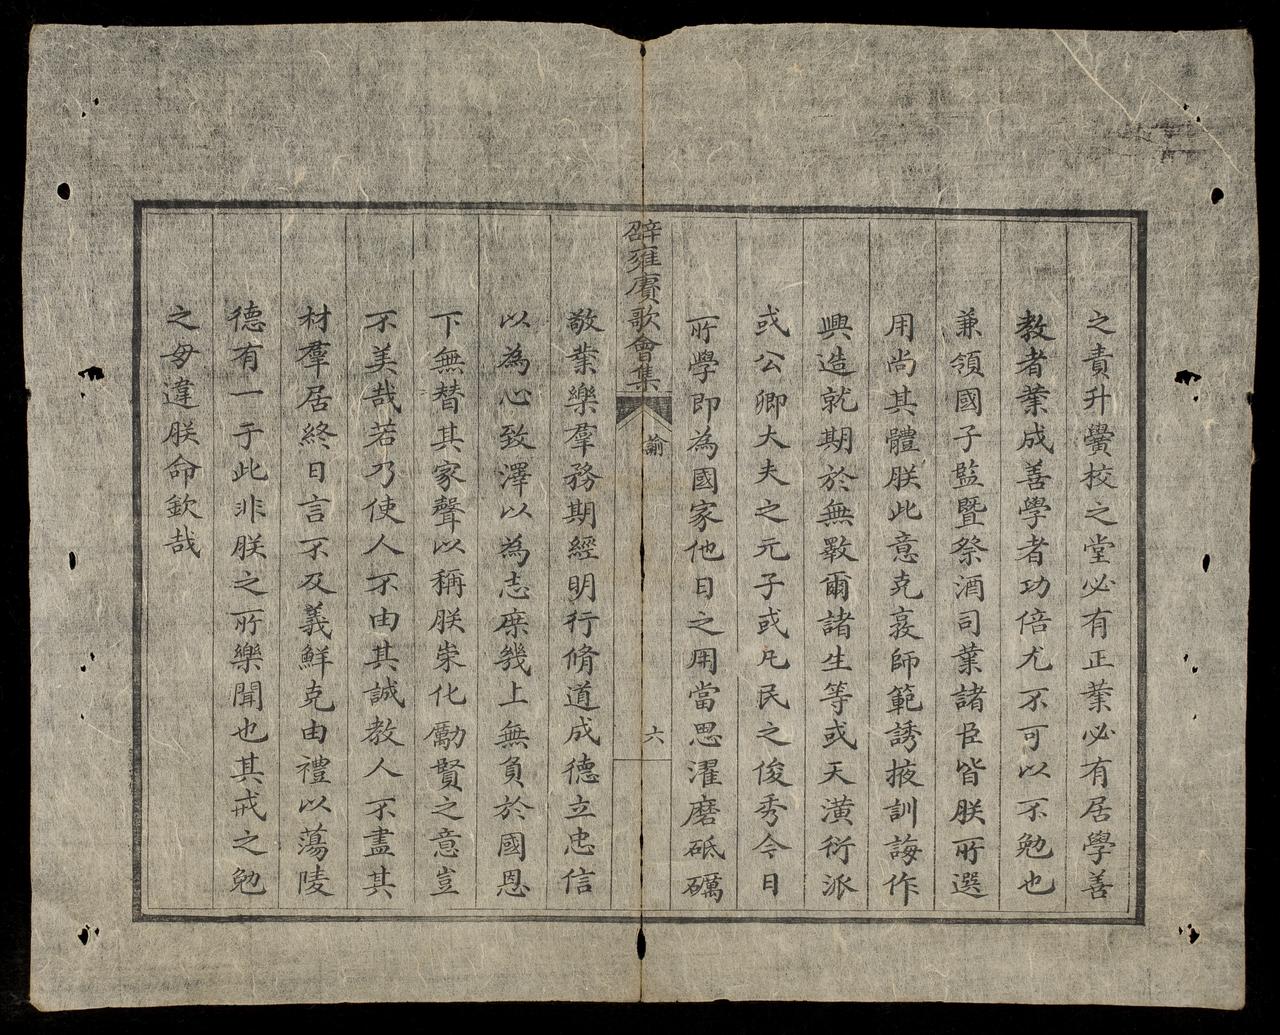 之責升黌校之堂必有正業必有居學善
教者業成善學者功倍尤不可以不勉也
兼領國子監暨祭酒司業諸臣皆朕所選
用尚其體朕此意克敦師範誘掖訓誨作
興造就期於無斁爾諸生等或天潢衍派
或公卿大夫之元子或凡民之俊秀今日
所學即為國家他日之用當思濯磨砥礪
辟雍賡歌會集
諭
六
敬業樂羣務期經明行脩道成德立忠信
以為心致澤以為志庶幾上無負於國恩
下無替其家聲以稱朕崇化勵賢之意豈
不美哉若乃使人不由其誠教人不盡其
材羣居終日言不及義鮮克由禮以蕩陵
德有一于此非朕之所樂聞也其戒之勉
之毋違朕命欽哉